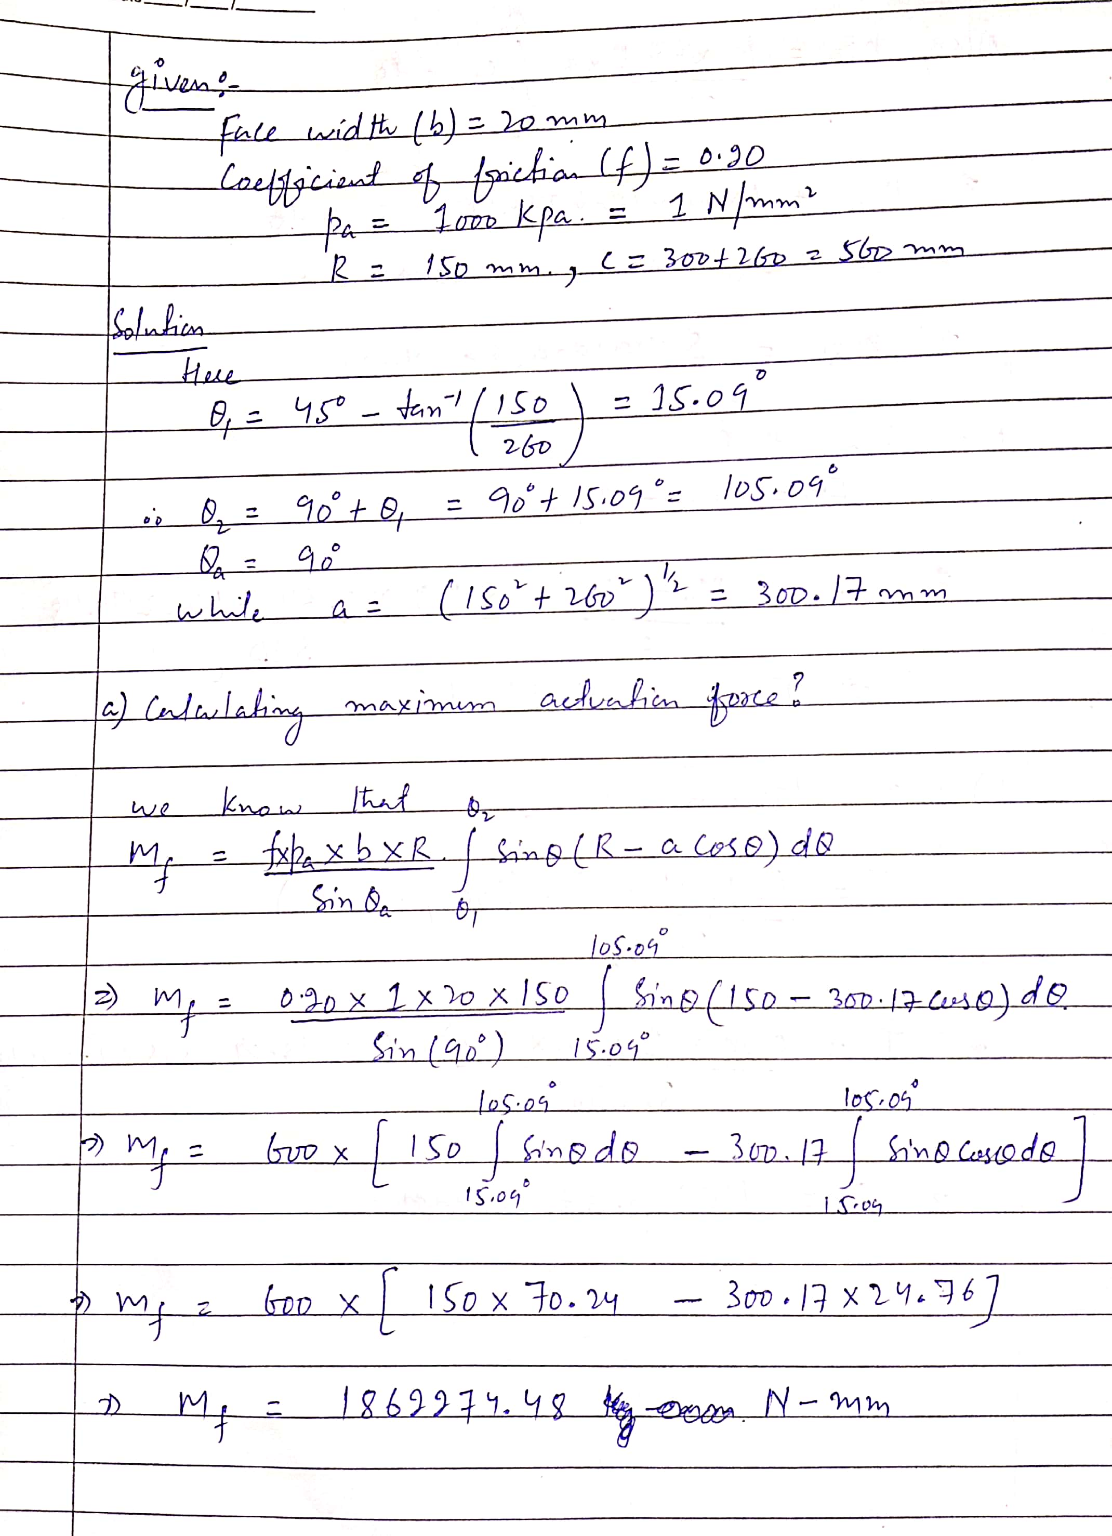 given:-
Face width (b) = 20 mm
Coefficient of friction (f) = 0.20
pa = 1000 kpa. = 1 N/mm²
R = 150 mm., c = 300+260 = 560 mm
Solution
Here
θ₁ = 45° - tan⁻¹ (150/260) = 15.09°
∴ θ₂ = 90° + θ₁ = 90° + 15.09° = 105.09°
θa = 90°
while a = (150² + 260²)^½ = 300.17 mm
a) Calculating maximum actuation force?
we know that
Mf = f×pa×b×R / Sin θa ∫_θ₁^θ₂ Sinθ (R - a cosθ) dθ
⇒ Mf = 0.20 × 1 × 20 × 150 / Sin(90°) ∫_15.09°^105.09° Sinθ (150 - 300.17 cosθ) dθ
⇒ Mf = 600 × [150 ∫_15.09°^105.09° Sinθ dθ - 300.17 ∫_15.09^105.09° Sinθ cosθ dθ]
⇒ Mf = 600 × [150 × 70.24 - 300.17 × 24.76]
⇒ Mf = 1862274.48 N-mm